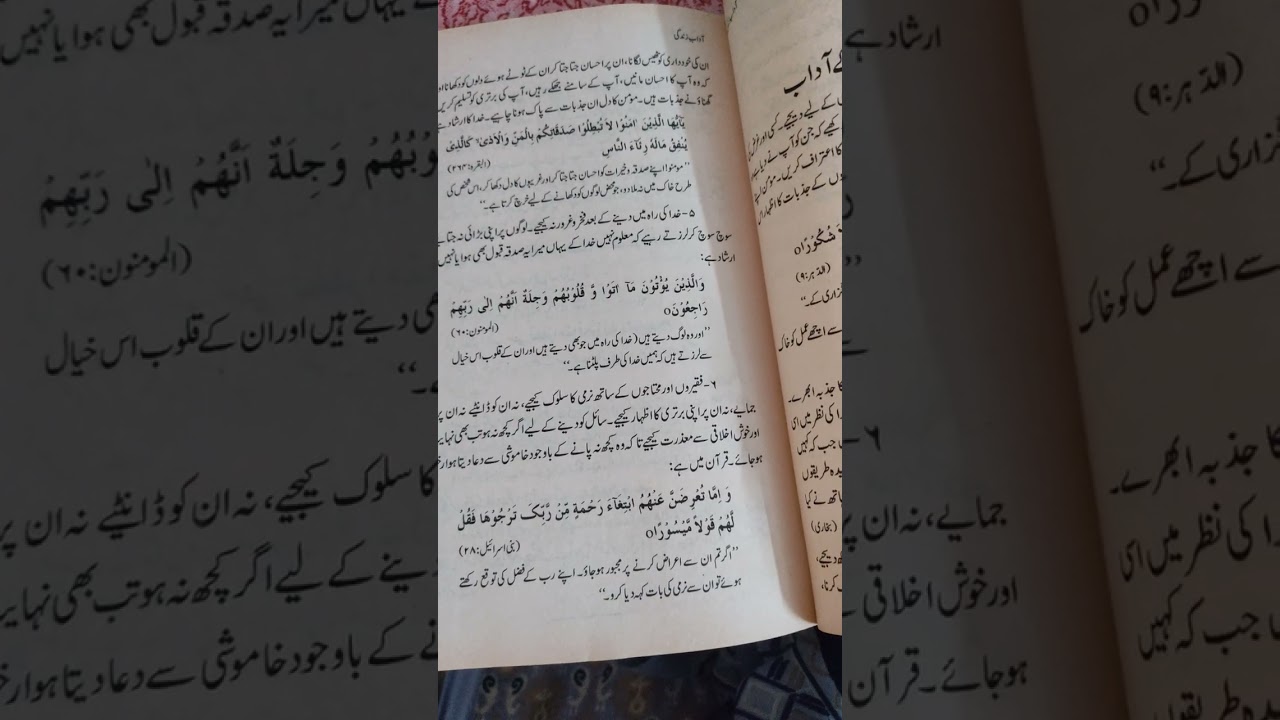 آداب زندگی
ان کی خودداری کو ٹھیس لگانا، ان پر احسان جتا جتا کر ان کے ٹوٹے ہوئے دلوں کو دکھانا اور
کہ وہ آپ کا احسان مانیں، آپ کے سامنے جھکے رہیں، آپ کی برتری کو تسلیم کریں
گھناؤنے جذبات ہیں۔ مومن کا دل ان جذبات سے پاک ہونا چاہیے۔ خدا کا ارشاد ہے
یٰۤاَیُّهَا الَّذِیْنَ اٰمَنُوْا لَا تُبْطِلُوْا صَدَقَاتِکُمْ بِالْمَنِّ وَالْاَذٰی کَالَّذِیْ
یُنْفِقُ مَالَهٗ رِئَآءَ النَّاسِ (البقرہ:۲۶۴)
”مومنو! اپنے صدقہ و خیرات کو احسان جتا جتا کر اور غریبوں کا دل دکھا کر، اس شخص کی
طرح خاک میں نہ ملا دو، جو محض لوگوں کو دکھانے کے لیے خرچ کرتا ہے۔“
۵- خدا کی راہ میں دینے کے بعد فخر و غرور نہ کیجیے۔ لوگوں پر اپنی بڑائی نہ جتایے
سوچ سوچ کر لرزتے رہیے کہ معلوم نہیں خدا کے یہاں میرا یہ صدقہ قبول بھی ہوا یا نہیں
ارشاد ہے:
وَالَّذِیْنَ یُؤْتُوْنَ مَاۤ اٰتَوْا وَّ قُلُوْبُهُمْ وَجِلَةٌ اَنَّهُمْ اِلٰی رَبِّهِمْ
رَاجِعُوْنَ٥ (المومنون:۶۰)
”اور وہ لوگ دیتے ہیں (خدا کی راہ میں جو بھی دیتے ہیں اور ان کے قلوب اس خیال
سے لرزتے ہیں کہ ہمیں خدا کی طرف پلٹنا ہے۔“
۶- فقیروں اور محتاجوں کے ساتھ نرمی کا سلوک کیجیے، نہ ان کو ڈانٹیے نہ ان پر
جمایے، نہ ان پر اپنی برتری کا اظہار کیجیے۔ سائل کو دینے کے لیے اگر کچھ نہ ہو تب بھی نہایت
اور خوش اخلاقی سے معذرت کیجیے تاکہ وہ کچھ نہ پانے کے باوجود خاموشی سے دعا دیتا ہوا رخ
ہو جائے۔ قرآن میں ہے:
وَ اِمَّا تُعْرِضَنَّ عَنْهُمُ ابْتِغَآءَ رَحْمَةٍ مِّنْ رَّبِّکَ تَرْجُوْهَا فَقُلْ
لَّهُمْ قَوْلًا مَّیْسُوْرًا٥ (بنی اسرائیل:۲۸)
”اگر تم ان سے اعراض کرنے پر مجبور ہو جاؤ۔ اپنے رب کے فضل کی توقع رکھتے
ہوئے تو ان سے نرمی کی بات کہہ دیا کرو۔“
کے آداب
کے لیے دیجیے۔
کا اعتراف کریں۔ مومن
کے جذبات کا اظہار
شُکُوْرًا٥
(الدّہر:۹)
گزاری کے۔“
سے اچھے عمل کو خاک
کا جذبہ ابھرے۔
کی نظر میں اسی
جب کہ کہیں
طریقوں
(بخاری)